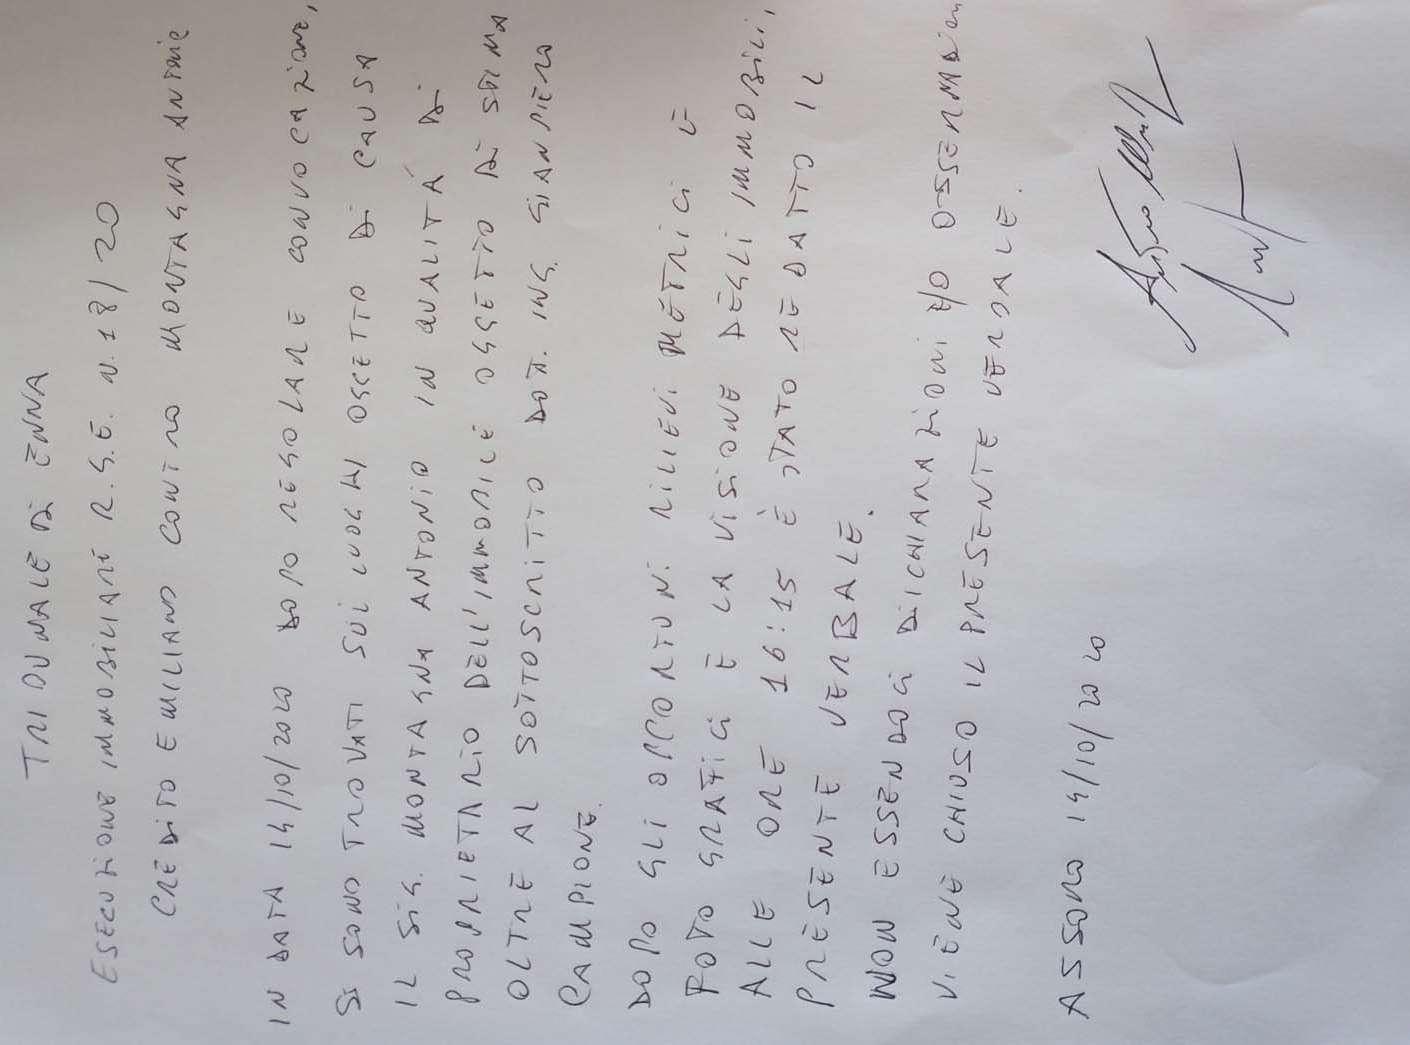 TRIBUNALE DI ENNA
ESECUZIONE IMMOBILIARE R.G.E. N. 18/20
CREDITO EMILIANO CONTRO MONTAGNA ANTONIO
IN DATA 14/10/2020 DOPO REGOLARE CONVOCAZIONE,
SI SONO TROVATI SUI LUOGHI OGGETTO DI CAUSA
IL SIG. MONTAGNA ANTONIO IN QUALITÀ DI
PROPRIETARIO DELL'IMMOBILE OGGETTO DI STIMA
OLTRE AL SOTTOSCRITTO DOTT. ING. GIANPIERO
CAMPIONE.
DOPO GLI OPPORTUNI RILIEVI METRICI E
FOTOGRAFICI E LA VISIONE DEGLI IMMOBILI,
ALLE ORE 16:15 È STATO REDATTO IL
PRESENTE VERBALE.
NON ESSENDOCI DICHIARAZIONI E/O OSSERVAZIONI
VIENE CHIUSO IL PRESENTE VERBALE.
ASSORO 14/10/2020